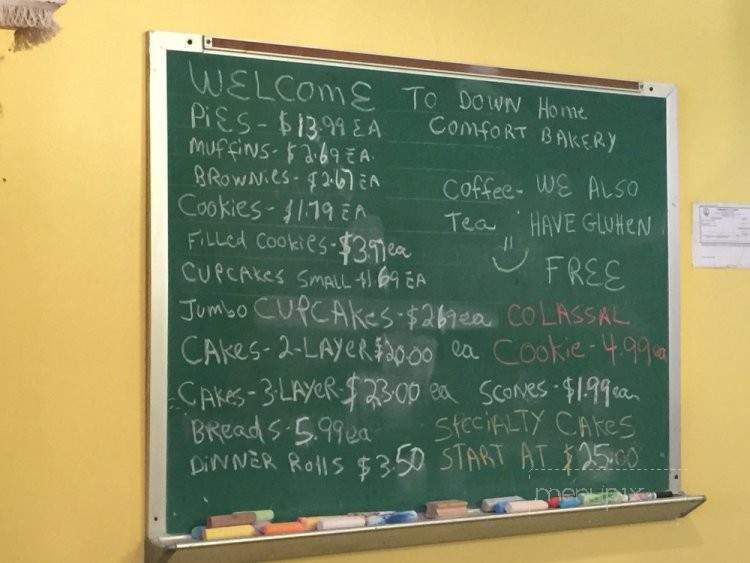 WELCOME TO DOWN Home
COMFORT BAKERY
PiES - $13.99 EA
MUFFiNS - $2.69 EA.
BROWNiES - $2.67 EA
COOKiES - $1.79 EA
FiLLED COOKiES - $3.99 ea
CUPCAKES SMALL - $1.69 EA
Jumbo CUPCAKes - $2.69 ea
CAKes - 2-LAYER $20.00 ea
CAKes - 3-LAYER - $23.00 ea
BReadS - 5.99 ea
DiNNER RollS $3.50
Coffee - WE ALSO
Tea HAVE GLUHEN
FREE
COLASSAL
Cookie - 4.99 ea
SCONES - $1.99 ea
SPECiALTY CAKES
START AT $25.00
menupix